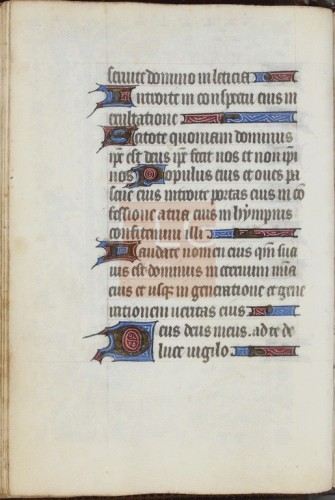 seruite domino in leticia
Introite in conspectu eius in
exultatione
Scitote quoniam dominus
ip̄e est deus ip̄e fecit nos et non ip̄i
nos Populus eius et oues pa
scue eius introite portas eius in cō
fessione atria eius in hympnis
confitemini illi
Laudate nomen eius qm̄ sua
uis est dominus in eternum mīa
eius et usq; in generatione et gene
rationem ueritas eius
Deus deus meus. ad te de
luce uigilo